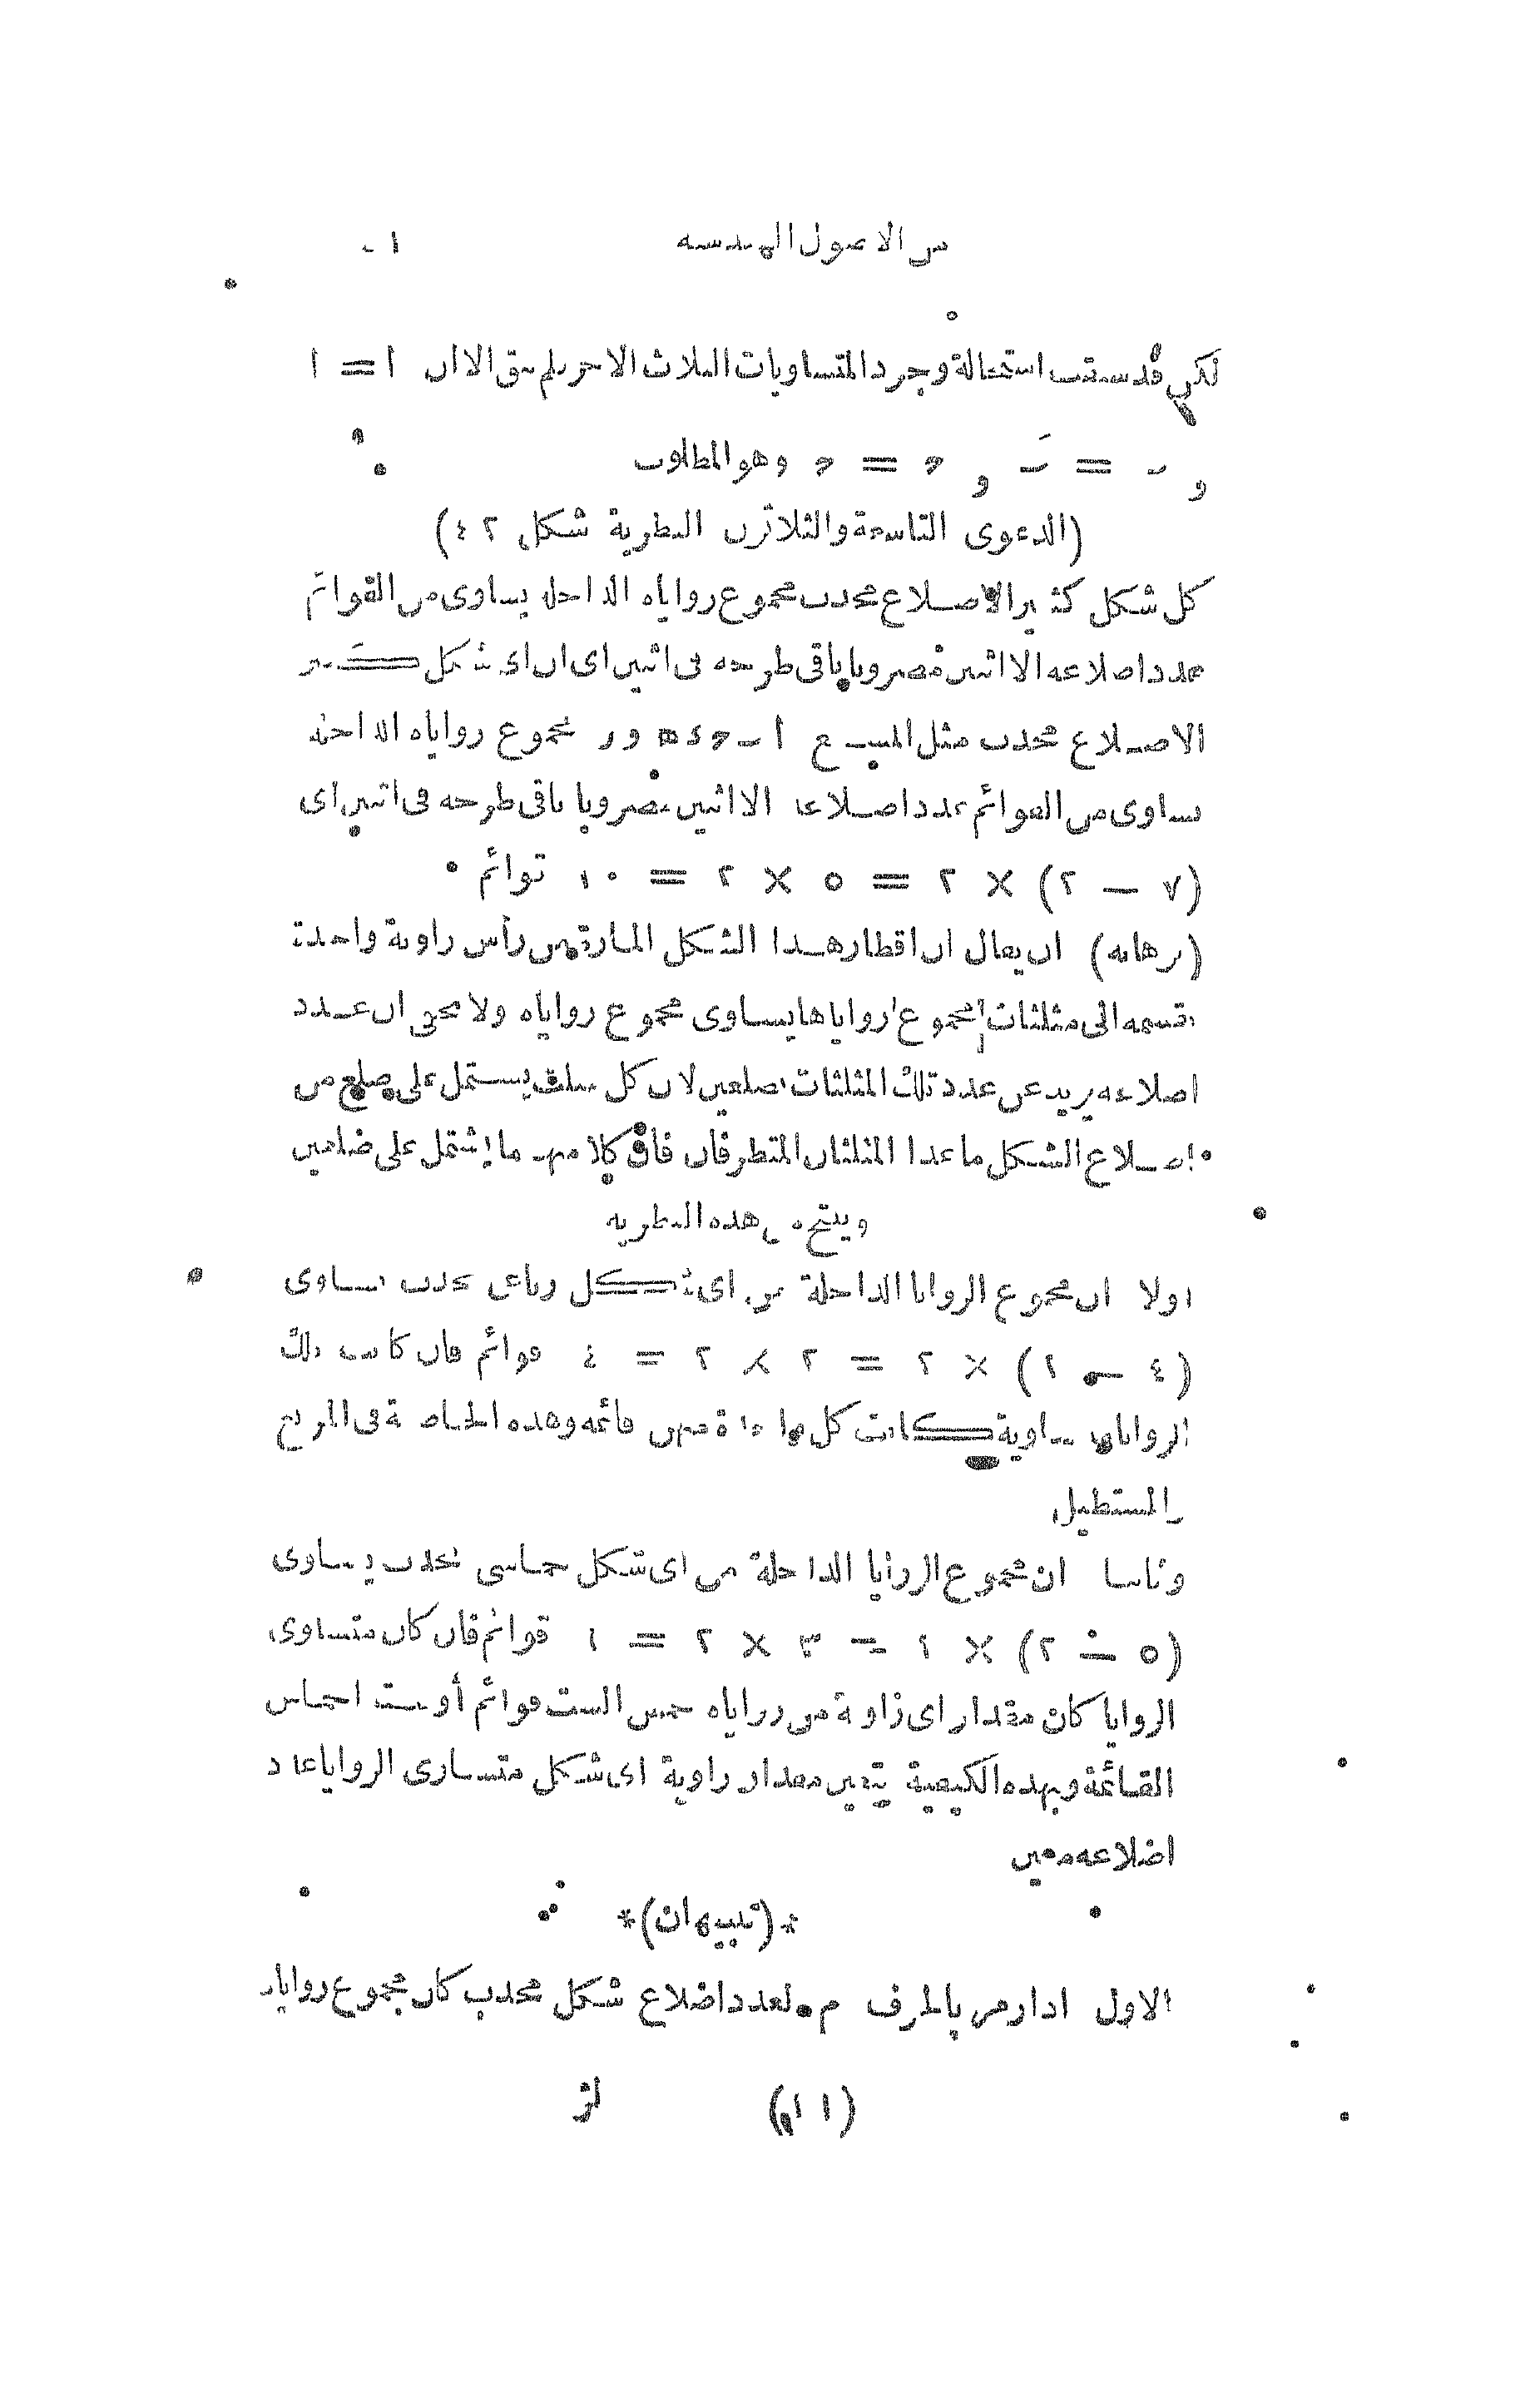 من الاصول الهندسه
لكن قد سبقت استحالة وجود المتساويات الثلاث الاخر فلم يبق الا ان ا = ا
و ب = ب و ح = ح وهو المطلوب
(الدعوى التاسعة والثلاثون النظرية شكل ٤٢)
كل شكل كثير الاضلاع محدب مجموع زواياه الداخلة يساوى من القوائم
عدد اضلاعه الا اثنين مضروبا باقى طرحه فى اثنين اى ان اى شكل كثير
الاضلاع محدب مثل المسبع ا ب ح ء ه و ر مجموع زواياه الداخلة
يساوى من القوائم عدد اضلاعه الا اثنين مضروبا باقى طرحه فى اثنين اى
(٧ — ٢) × ٢ = ٥ × ٢ = ١٠ قوائم
(برهانه) ان يقال ان اقطار هذا الشكل المارة من رأس زاوية واحدة
تقسمه الى مثلثات مجموع زواياها يساوى مجموع زواياه ولا يخفى ان عدد
اضلاعه يزيد عن عدد تلك المثلثات ضلعين لان كل مثلث يشتمل على ضلع من
اضلاع الشكل ما عدا المثلثان المتطرفان فان كلا منهما يشتمل على ضلعين
وينتج من هذه النظريه
اولا ان مجموع الزوايا الداخلة من اى شكل رباعى محدب يساوى
(٤ — ٢) × ٢ = ٢ × ٢ = ٤ قوائم فان كانت تلك
الزوايا متساوية كانت كل واحدة منهن قائمه وهذه الخاصة فى المربع
والمستطيل
وثانيا ان مجموع الزوايا الداخلة من اى شكل خماسى محدب يساوى
(٥ — ٢) × ٢ = ٣ × ٢ = ٦ قوائم فان كان متساوى
الزوايا كان مقدار اى زاوية من زواياه خمس الست قوائم أو ستة اخماس
القائمة وبهذه الكيفية يتعين مقدار زاوية اى شكل متساوى الزوايا عدد
اضلاعه معين
*(تنبيهان)*
الاول اذا رمز بالحرف م لعدد اضلاع شكل محدب كان مجموع زواياه